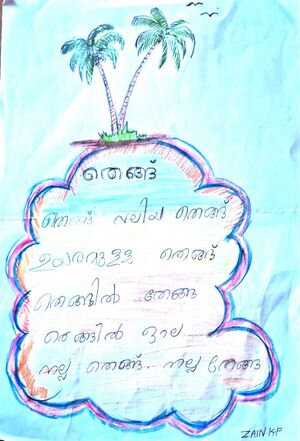 തെങ്ങ്
തെങ്ങ് വലിയ തെങ്ങ്
ഉയരമുള്ള തെങ്ങ്
തെങ്ങിൽ തേങ്ങ
തെങ്ങിൽ ഓല
നല്ല തെങ്ങ്.. നല്ല തേങ്ങ
ZAIN K.P